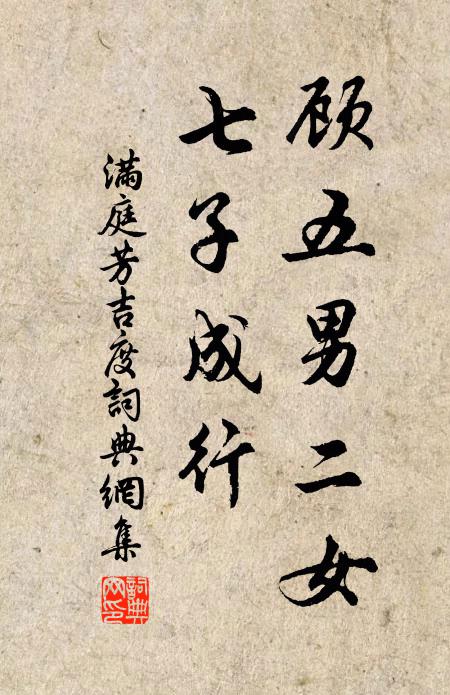 顾五男二女
七子成行
滿庭芳吉度詞典網集
詞典
网印